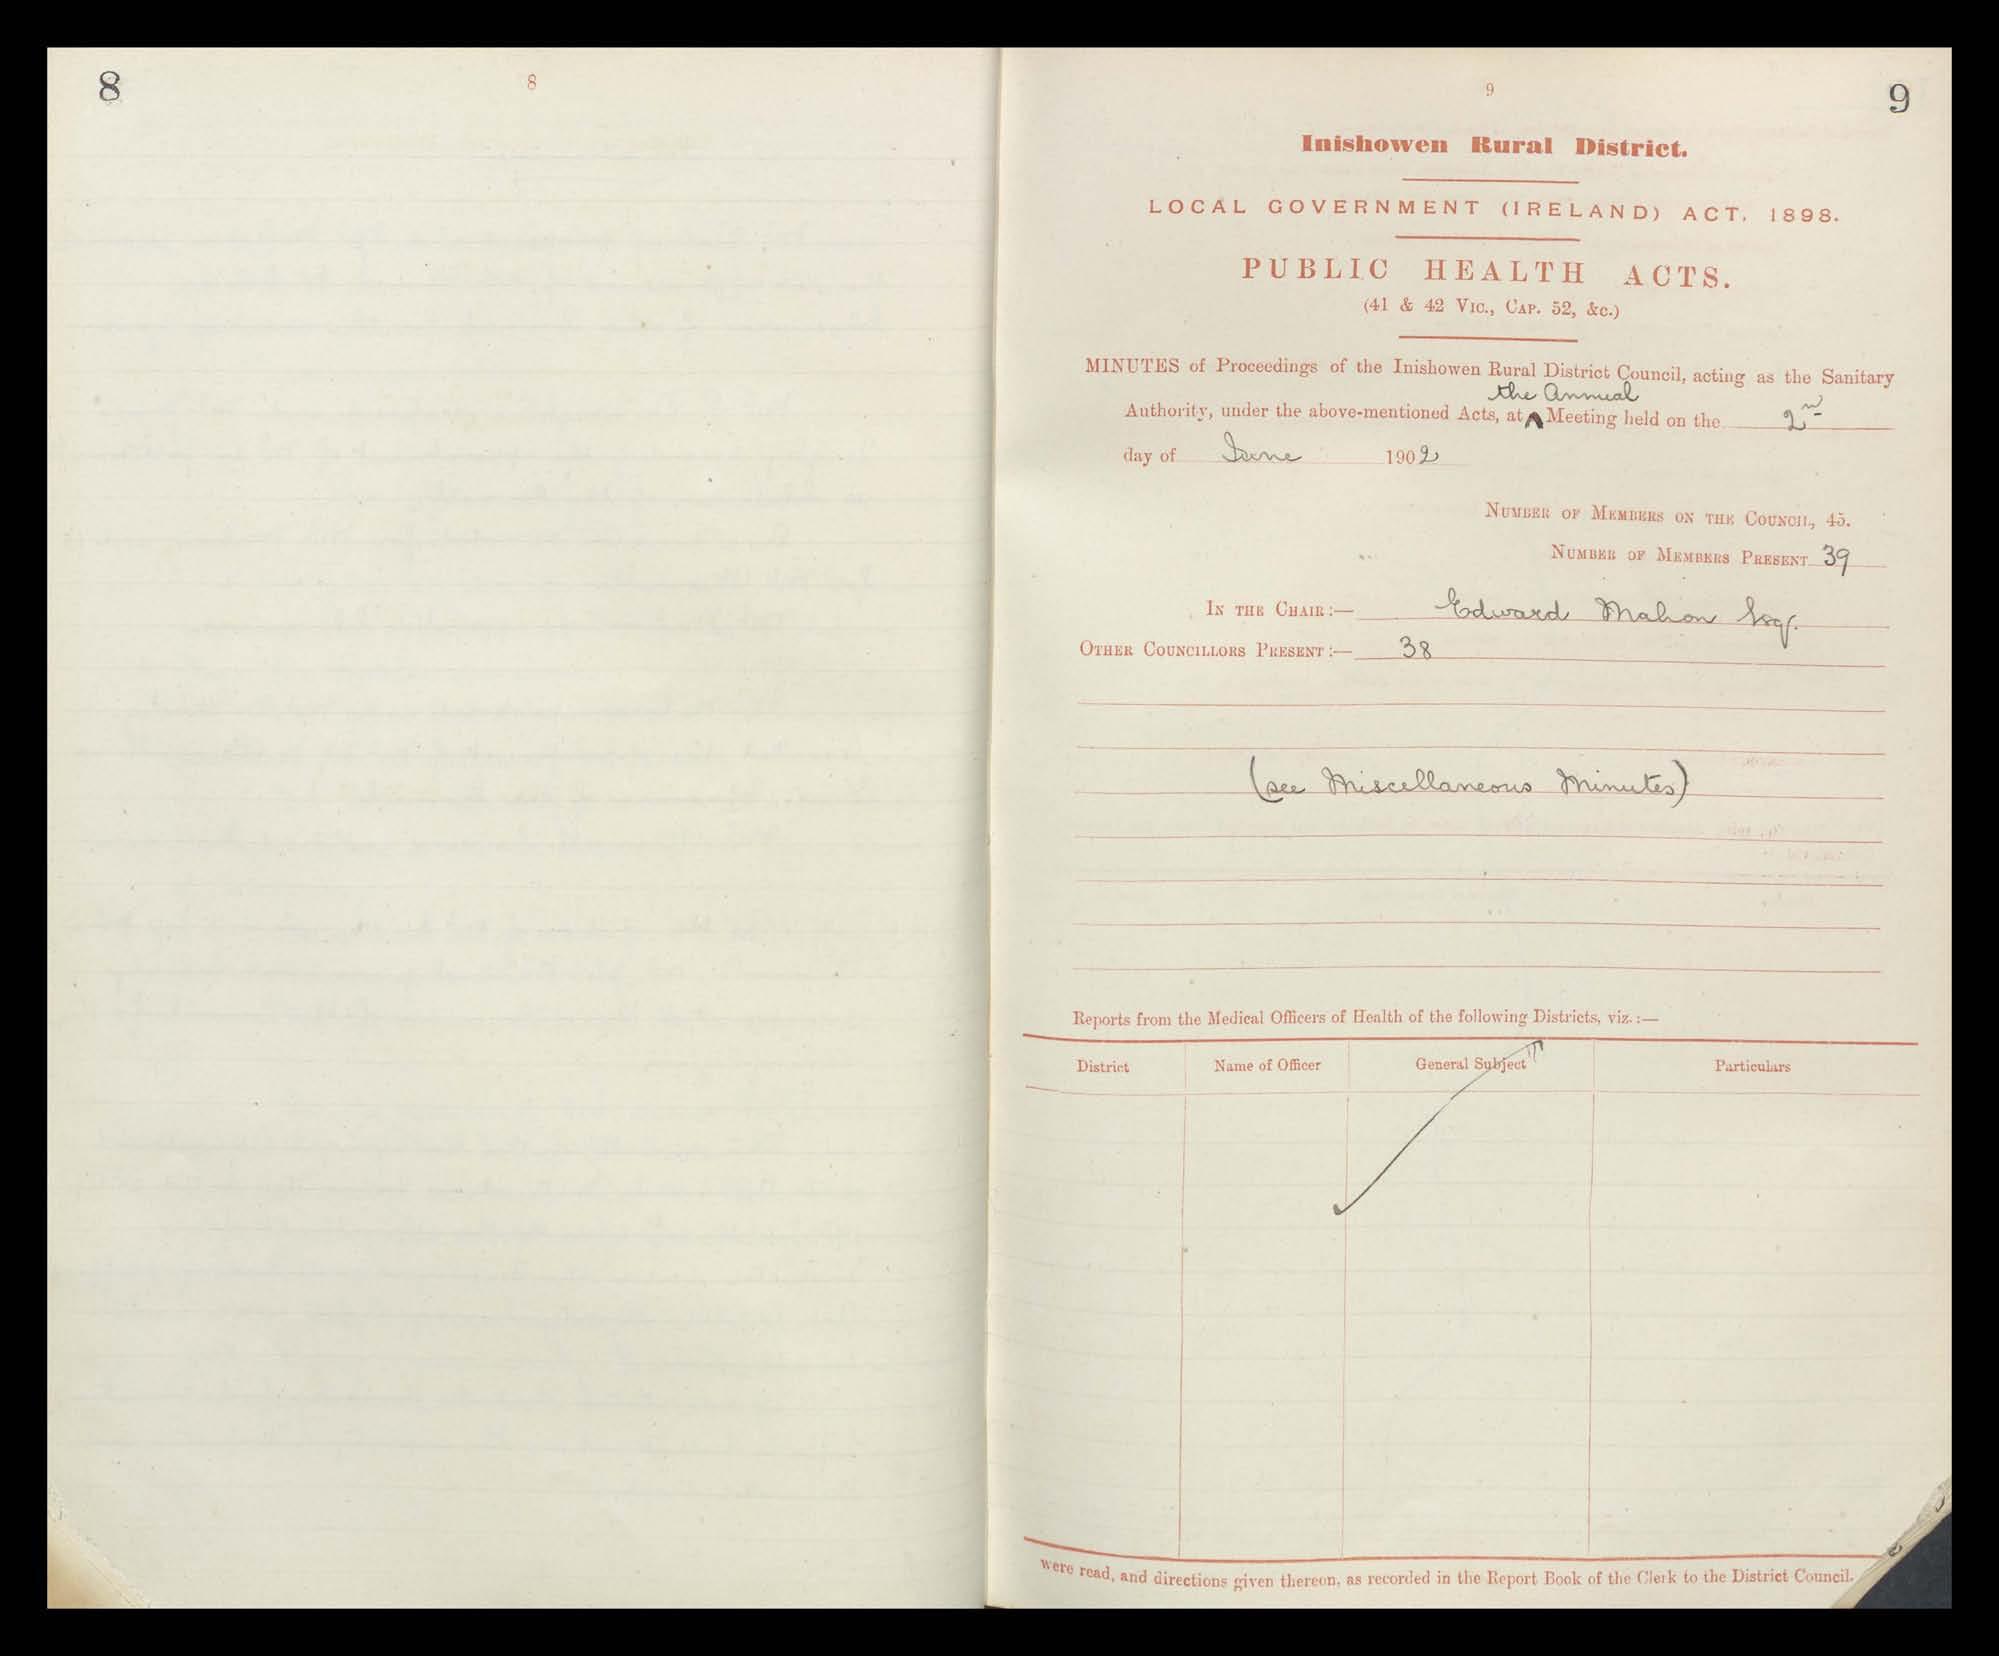 8
8
9
9
Inishowen Rural District.
LOCAL GOVERNMENT (IRELAND) ACT, 1898.
PUBLIC HEALTH ACTS.
(41 & 42 VIC., CAP. 52, &C.)
MINUTES of Proceedings of the Inishowen Rural District Council, acting as the Sanitary
the Annual
Authority, under the above-mentioned Acts, at ^ Meeting held on the 2nd
day of June 1902
NUMBER OF MEMBERS ON THE COUNCIL, 45.
NUMBER OF MEMBERS PRESENT 39
IN THE CHAIR:— Edward Mahon Esqr.
OTHER COUNCILLORS PRESENT:— 38
(see Miscellaneous Minutes)
Reports from the Medical Officers of Health of the following Districts, viz.:—
District Name of Officer General Subject Particulars
were read, and directions given thereon, as recorded in the Report Book of the Clerk to the District Council.